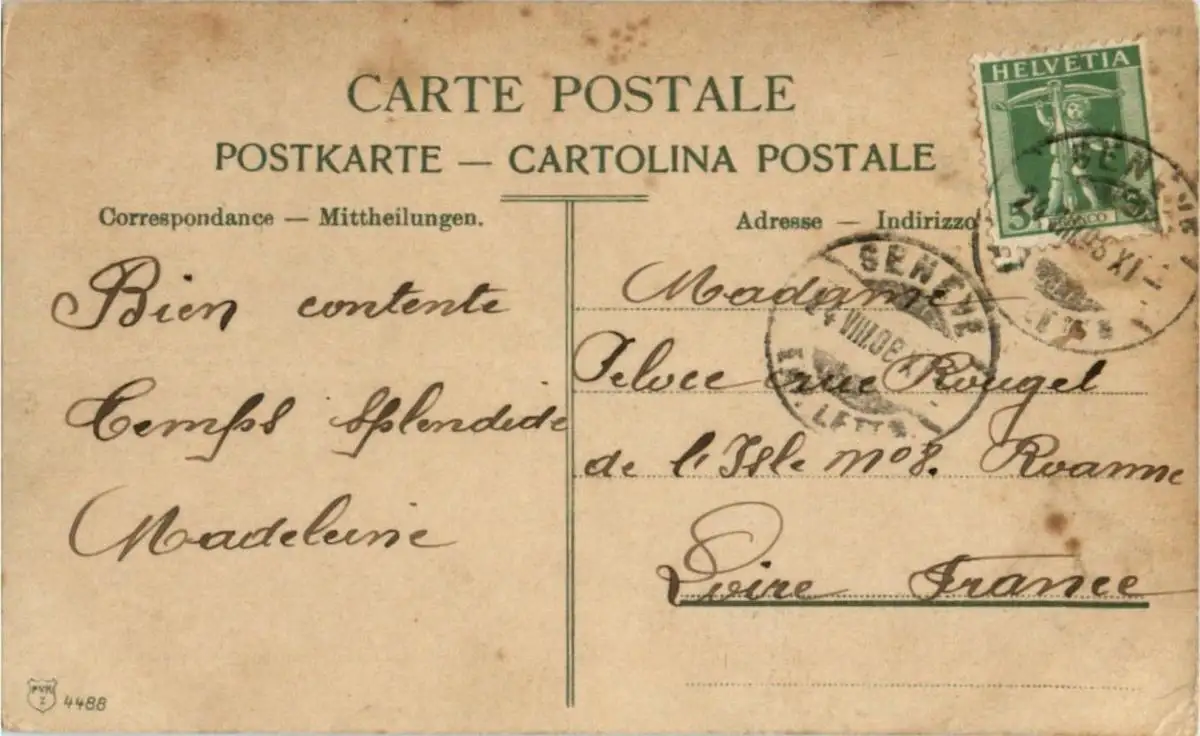 CARTE POSTALE
POSTKARTE — CARTOLINA POSTALE
Correspondance — Mittheilungen.
Adresse — Indirizzo
HELVETIA
5
FRANCO
GENEVE
24 VIII.08 XI
EXP. LETTR.
Bien contente
Temps splendide
Madeleine
Madame
rue Rouget
de l'Isle No 8. Roanne
Loire France
4488